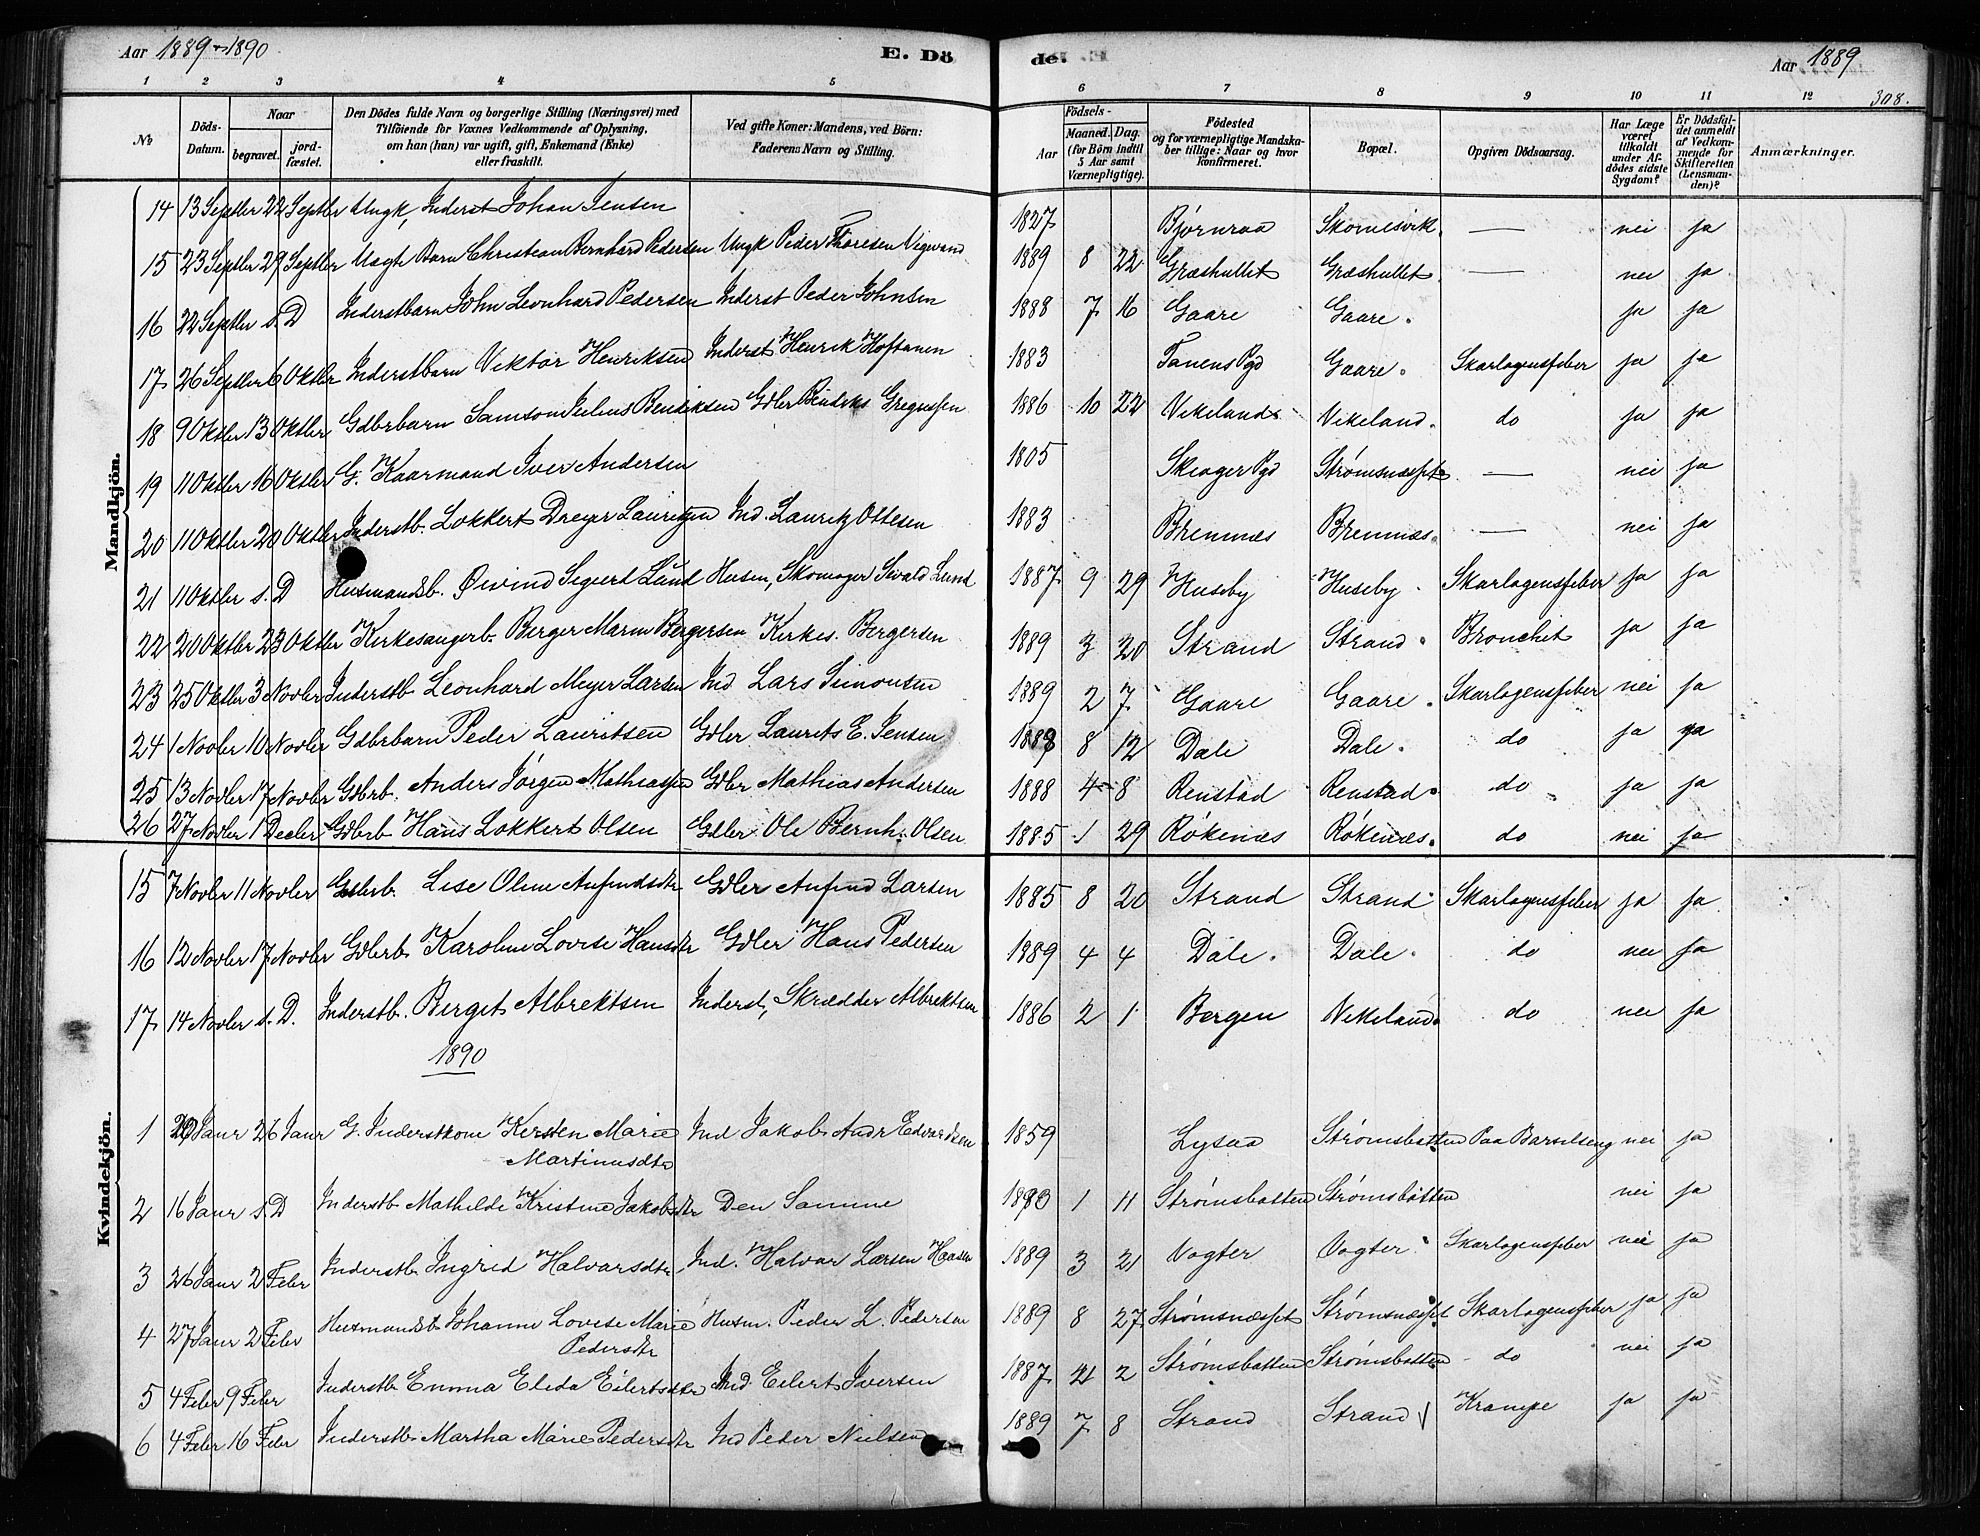 Aar 1889-1890
E. Dö
de.
Aar 1889
308.
1 2 3 4 5 6 7 8 9 10 11 12
№
Döds-Datum.
Naar
begravet.
jord-fæstet.
Den Dödes fulde Navn og borgerlige Stilling (Næringsvei) med
Tilföiende for Voxnes Vedkommende af Oplysning,
om han (hun) var ugift, gift, Enkemand (Enke)
eller fraskilt.
Ved gifte Koner: Mandens, ved Börn:
Faderens Navn og Stilling.
Födsels-
Aar
Maaned. Dag.
(for Börn indtil
5 Aar samt
Værnepligtige).
Födested
og for værnepligtige Mandska-
ber tillige: Naar og hvor
konfirmeret.
Bopæl.
Opgiven Dödsaarsag.
Har Læge
været
tilkaldt
under Af-
dödes sidste
Sygdom?
Er Dödsfal-
det anmeldt
af Vedkom-
mende for
Skifteretten
(Lensman-
den)?
Anmærkninger.
Mandkjön.
14 13 Septbr 22 Septbr Ungk, Inderst Johan Jensen 1827 Bjørnraa Skornesvik. — nei ja
15 23 Septbr 29 Septbr Uægte Barn Christean Bernhard Pedersen Ungk Peder Thoresen Vigvand 1889 8 22 Græshullet Græshullet. — nei ja
16 22 Septbr s. D Inderstbarn John Leonhard Pedersen Inderst Peder Johnsen 1888 7 16 Gaare Gaare. ja ja
17 26 Septbr 6 Oktbr Inderstbarn Viktor Henriksen Inderst Henrik Hoftanen 1883 Tanens Pgd Gaare. Skarlagensfeber ja ja
18 9 Oktbr 13 Oktbr Gdbrbarn Samson Julius Bendiksen Gdbr Bendiks Gregussen 1886 10 22 Vikeland Vikeland. do ja ja
19 11 Oktbr 16 Oktbr G. Kaarmand Iver Andersen 1805 Skioger Pgd Strømsnæsset — nei ja
20 11 Oktbr 20 Oktbr Inderstb. Lokkert Dreyer Lauritzen Ind. Lauritz Ottesen 1883 Bremnæs Bremnæs. — nei ja
21 11 Oktbr s. D Husmandsb. Øivind Sigurt Lund Husm, Skomager Sivald Lund 1887 9 29 Huseby Huseby. Skarlagensfeber ja ja
22 20 Oktbr 23 Oktbr Kirkesangerb. Berger Marin Bergersen Kirkes. Bergersen 1889 3 20 Strand Strand. Bronchit ja ja
23 25 Oktbr 3 Novbr Inderstb Leonhard Meyer Larsen Ind Lars Simonsen 1889 2 7 Gaare Gaare. Skarlagensfeber nei ja
24 1 Novbr 10 Novbr Gdbrbarn Peder Lauritsen Gdbr Laurits E. Jensen 1888 8 12 Dale Dale. do ja ja
25 13 Novbr 17 Novbr Gdbrb. Anders Jørgen Mathiassen Gdbr Mathias Andersen 1888 4 8 Renstad Renstad. do ja ja
26 27 Novbr 1 Decbr Gdbrb Hans Lokkert Olsen Gdbr Ole Bernh. Olsen 1885 1 29 Røkenæs Røkenæs. do nei ja
Kvindekjön.
15 7 Novbr 11 Novbr Gdbrb. Lise Oline Anfindsdtr Gdbr Anfind Larsen 1885 8 20 Strand Strand Skarlagensfeber ja ja
16 12 Novbr 17 Novbr Gdbrb Karoline Lovise Hansdtr Gdbr Hans Pedersen 1889 4 4 Dale. Dale. do nei ja
17 14 Novbr s. D. Inderstb. Berget Albrektsen Inderst, Skrædder Albrektsen 1886 2 1 Bergen Vikeland. do nei ja
1890
1 20 Janr 26 Janr G. Inderstkone Kersten Marie Martinusdtr Ind Jakob Andr Edvardsen 1859 Lysaa Strømsbotten Paa Barselseng nei ja
2 16 Janr s. D Inderstb Mathilde Kristine Jakobsdtr Den Samme 1890 1 11 Strømsbotten Strømsbotten nei ja
3 26 Janr 2 Febr Inderstb. Ingrid Halvarsdtr Ind. Halvar Larsen Haasen 1889 3 21 Vogter Vogter. Skarlagensfeber nei ja
4 27 Janr 2 Febr Husmandsb Johanne Lovise Marie Pedersdtr Husm. Peder L. Pedersen 1889 8 27 Strømsnæsset Strømsnæsset Skarlagensfeber ja ja
5 4 Febr 9 Febr Inderstb. Emma Elida Eilertsdtr Ind Eilert Iversen 1887 2 Strømsbotten Strømsbotten do nei ja
6 4 Febr 16 Febr Inderstb. Martha Marie Pedersdtr Ind Peder Nielsen 1889 7 8 Strand Strand Krampe ja ja